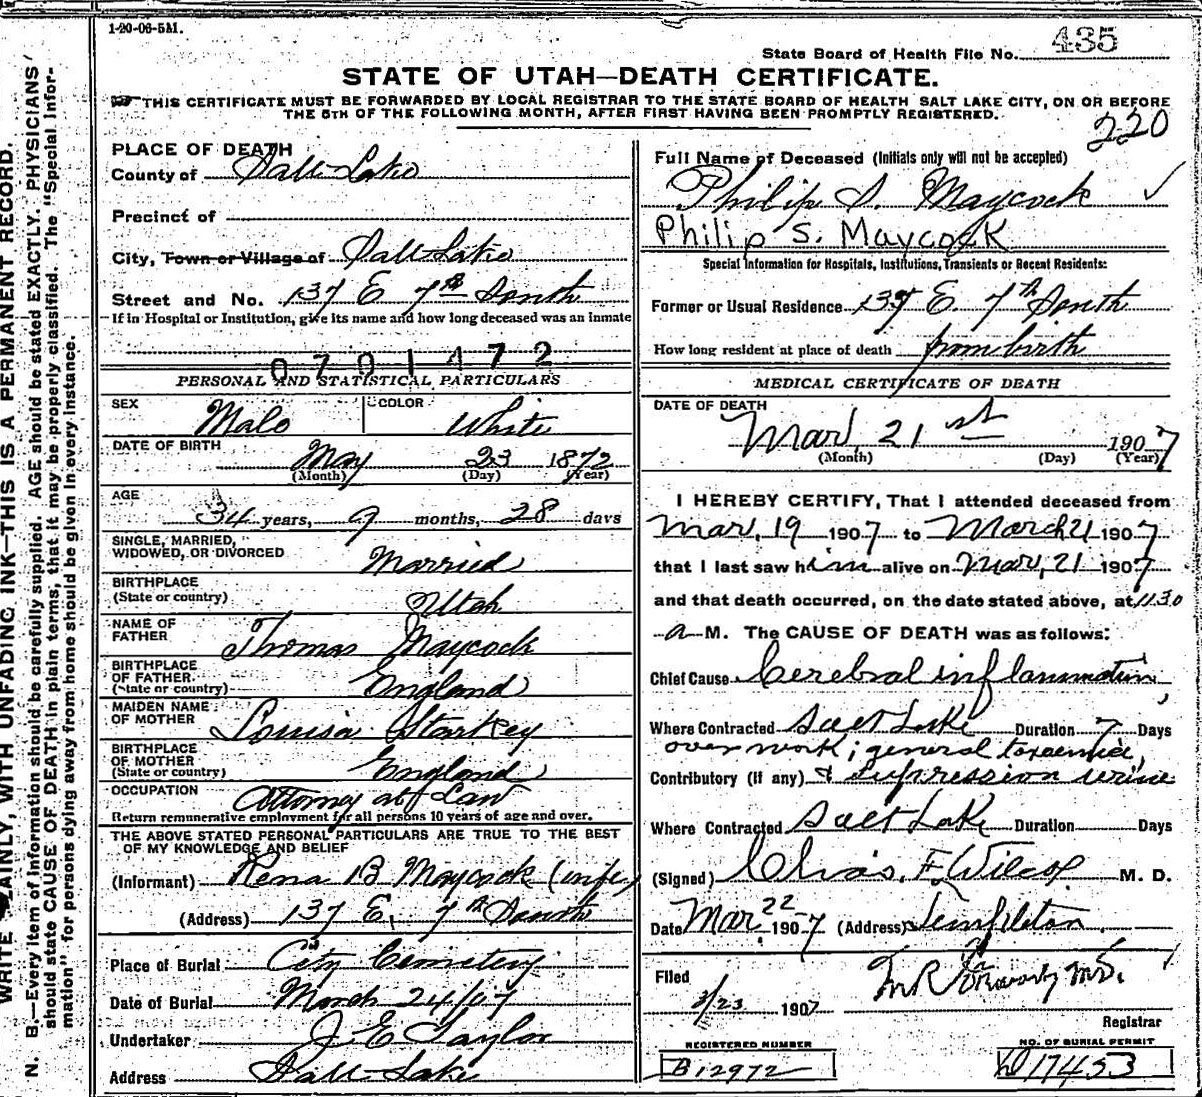 1-20-06-5M.
State Board of Health File No. 435
STATE OF UTAH—DEATH CERTIFICATE.
THIS CERTIFICATE MUST BE FORWARDED BY LOCAL REGISTRAR TO THE STATE BOARD OF HEALTH SALT LAKE CITY, ON OR BEFORE
THE 5TH OF THE FOLLOWING MONTH, AFTER FIRST HAVING BEEN PROMPTLY REGISTERED.
220
WRITE PLAINLY, WITH UNFADING INK—THIS IS A PERMANENT RECORD.
N. B.—Every item of information should be carefully supplied. AGE should be stated EXACTLY. PHYSICIANS
should state CAUSE OF DEATH in plain terms, that it may be properly classified. The "Special Infor-
mation" for persons dying away from home should be given in every instance.
PLACE OF DEATH
County of Salt Lake
Precinct of
City, Town or Village of Salt Lake
Street and No. 137 E 7th South
If in Hospital or Institution, give its name and how long deceased was an inmate
0701472
PERSONAL AND STATISTICAL PARTICULARS
SEX Male COLOR White
DATE OF BIRTH May 23 1872
(Month) (Day) (Year)
AGE 34 years, 9 months, 28 days
SINGLE, MARRIED,
WIDOWED, OR DIVORCED Married
BIRTHPLACE
(State or country) Utah
NAME OF
FATHER Thomas Maycock
BIRTHPLACE
OF FATHER
(State or country) England
MAIDEN NAME
OF MOTHER Louisa Starkey
BIRTHPLACE
OF MOTHER
(State or country) England
OCCUPATION Attorney at Law
Return remunerative employment for all persons 10 years of age and over.
THE ABOVE STATED PERSONAL PARTICULARS ARE TRUE TO THE BEST
OF MY KNOWLEDGE AND BELIEF
(Informant) Rena B Maycock (wife)
(Address) 137 E. 7th South
Place of Burial City Cemetery
Date of Burial March 24/07
Undertaker J E Taylor
Address Salt Lake
Full Name of Deceased (Initials only will not be accepted)
Philip S. Maycock
Philip S. Maycock
Special Information for Hospitals, Institutions, Transients or Recent Residents:
Former or Usual Residence 137 E. 7th South
How long resident at place of death from birth
MEDICAL CERTIFICATE OF DEATH
DATE OF DEATH
Mar 21st 1907
(Month) (Day) (Year)
I HEREBY CERTIFY, That I attended deceased from
Mar. 19 1907 to March 21 1907
that I last saw him alive on Mar, 21 1907
and that death occurred, on the date stated above, at 11.30
a M. The CAUSE OF DEATH was as follows:
Chief Cause Cerebral inflammation
Where Contracted Salt Lake Duration 7 Days
over work; general toxaemia,
Contributory (if any) & supression urine
Where Contracted Salt Lake Duration Days
(Signed) Chas. F. Wilcox M. D.
Date Mar. 22 1907 (Address) Templeton
Filed
3/23 1907 M.D.
Registrar
REGISTERED NUMBER
B12972
NO. OF BURIAL PERMIT
D17453